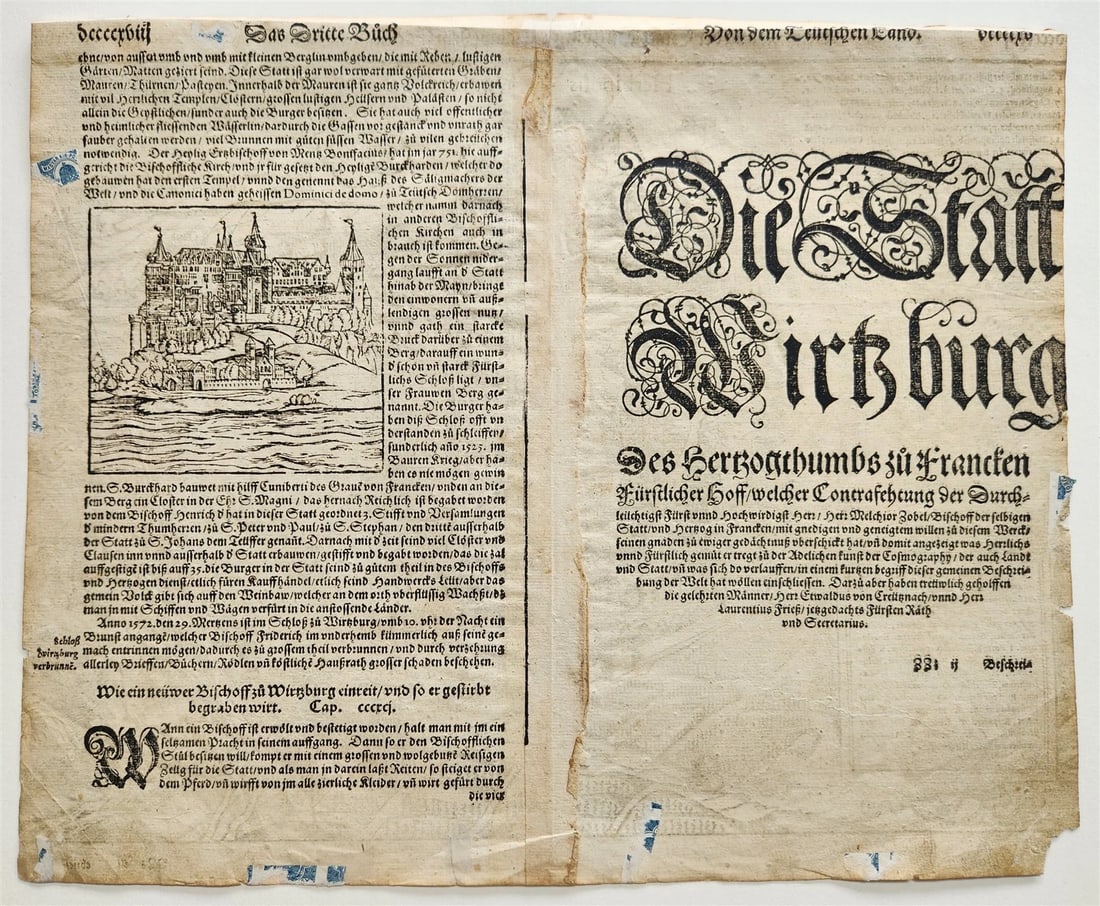 dccccxviij Das Dritte Bůch
ebne/von aussen vmb vnd vmb mit kleinen Berglin vmbgeben/die mit Reben/lustigen
Gärten/Matten geziert seind. Diese Statt ist gar wol verwart mit gefüterten Gräben/
Mauren/Thürnen/Pasteyen. Innerhalb der Mauren ist sie gantz Volckreich/erbawen
mit vil Herrlichen Templen/Clöstern/grossen lustigen Heüsern vnd Palästen/so nicht
allein die Geystlichen/sunder auch die Burger besitzen. Sie hat auch viel offentlicher
vnd heimlicher fliessenden Wässerlin/dardurch die Gassen vor gestanck vnd vnrath gar
sauber gehalten werden/viel Brunnen mit gůten süssen Wasser/zů vilen gebreüchen
notwendig. Der Heylig Ertzbischoff von Mentz Bonifacius/hat im jar 751. hie auff-
gericht die Bischoffliche Kirch/vnd jr für gesetzt den Heylige Burckharden/welcher do
gebauwen hat den ersten Tempel/vnnd den genennt das Hauß des Säligmachers der
Welt/vnd die Canonici haben geheissen Dominici de domo/zů Teütsch Domherren/
welcher namm darnach
in anderen Bischoffli-
chen Kirchen auch in
brauch ist kommen. Ge-
gen der Sonnen nider-
gang laufft an d Statt
hinab der Mayn/bringt
den einwonern vñ auß-
lendigen grossen nutz/
vnnd gath ein starcke
Bruck darüber zů einem
Berg/darauff ein wun-
d schön vñ starck Fürst-
lichs Schloß ligt/vn-
ser Frauwen Berg ge-
nannt. Die Burger ha-
ben diß Schloß offt vn
derstanden zů schleiffen/
sunderlich año 1525. jm
Bauren Krieg/aber ha-
ben es nie mögen gewin
nen. S. Burckhard bauwet mit hilff Cuniberti des Grauẽ von Francken/vnden an die-
sem Berg ein Closter in der Ehr S. Magni/das hernach Reichlich ist begabet worden
von dem Bischoff Henrich d hat in dieser Statt geordnet 3. Stifft vnd Versamlungen
d mindern Thumherren/zů S. Peter vnd Paul/zů S. Stephan/den dritte ausserhalb
der Statt zů S. Johans dem Teüffer genañt. Darnach mit d zeit seind viel Clöster vnd
Clausen inn vnnd ausserhalb d Statt erbauwen/gestifft vnd begabt worden/das die zal
auffgestige ist biß auff 35. die Burger in der Statt seind zů gůtem theil in des Bischoffs
vnd Hertzogen dienst/etlich füren Kauffhändel/etlich seind Handwercks Leüt/aber das
gemein Volck gibt sich auff den Weinbaw/welcher an dem orth vberflüssig Wachßt/dẽ
man in mit Schiffen vnd Wägen verfürt in die anstossende Länder.
Anno 1572. den 29. Mertzens ist im Schloß zů Wirtzburg/vmb 10. vhr der Nacht ein
Schloß
Wirtzburg
verbrunnẽ.
Brunst angangẽ/welcher Bischoff Friderich im vnderhemb kümmerlich auß seinẽ ge-
mach entrinnen mögen/dadurch es zů grossem theil verbrunnen/vnd durch verzehrung
allerley Brieffen/Büchern/Rödlen vñ köstlichẽ Haußrath grosser schaden beschehen.
Wie ein neüwer Bischoff zů Wirtzburg einreit/vnd so er gestirbt
begraben wirt. Cap. cccxcj.
WAnn ein Bischoff ist erwölt vnd bestetigt worden/halt man mit jm ein
seltzamen Pracht in seinem auffgang. Dann so er den Bischofflichen
Stůl besitzen will/kompt er mit einem grossen vnd wolgebutzẽ Reisigen
Zeüg für die Statt/vnd als man jn darein laßt Reiten/so steiget er von
dem Pferd/vñ wirfft von jm alle zierliche Kleider/vñ wirt gefürt durch
die vier
Von dem Teutschen Land.
Die Statt
Wirtzburg
Des Hertzogthumbs zů Francken
Fürstlicher Hoff/welcher Contrafehtung der Durch-
leüchtigst Fürst vnnd Hochwirdigst Herr/Herr Melchior Zobel/Bischoff der selbigen
Statt/vnd Hertzog in Francken/mit gnedigen vnd geneigtem willen zů diesem Werck/
seinen gnaden zů ewiger gedächtnuß vberschickt hat/vñ domit angezeigt was Herrlichs
vnnd Fürstlich gemüt er tregt zů der Adelichen kunst der Cosmography/der auch Landt
vnd Statt/vñ was sich do verlauffen/in einem kurtzen begriff dieser gemeinen Beschrei-
bung der Welt hat wöllen einschliessen. Darzů aber haben trewlich geholffen
die gelehrten Männer/Herr Etwaldus von Creütznach/vnnd Herr
Laurentius Frieß/jetzgedachts Fürsten Räth
vnd Secretarius.
ij Beschrei-